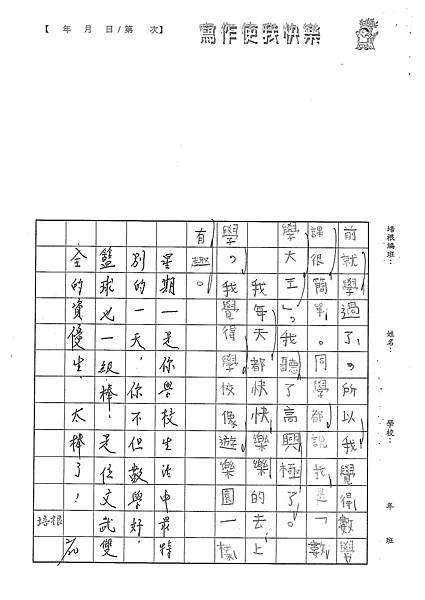 【 年 月 日/第 次】
寫作使我快樂
培根編班：
姓名：
學校：
年 班
前就學過了，所以我覺得數學
課很簡單。同學都說我是「數
學大王」。我聽了高興極了。
我每天都快快樂樂的去上
學，我覺得學校像遊樂園一樣
有趣。
星期一是你學校生活中最特
別的一天，你不但數學好，
籃球也一級棒！是位文武雙
全的資優生，太棒了！
培根